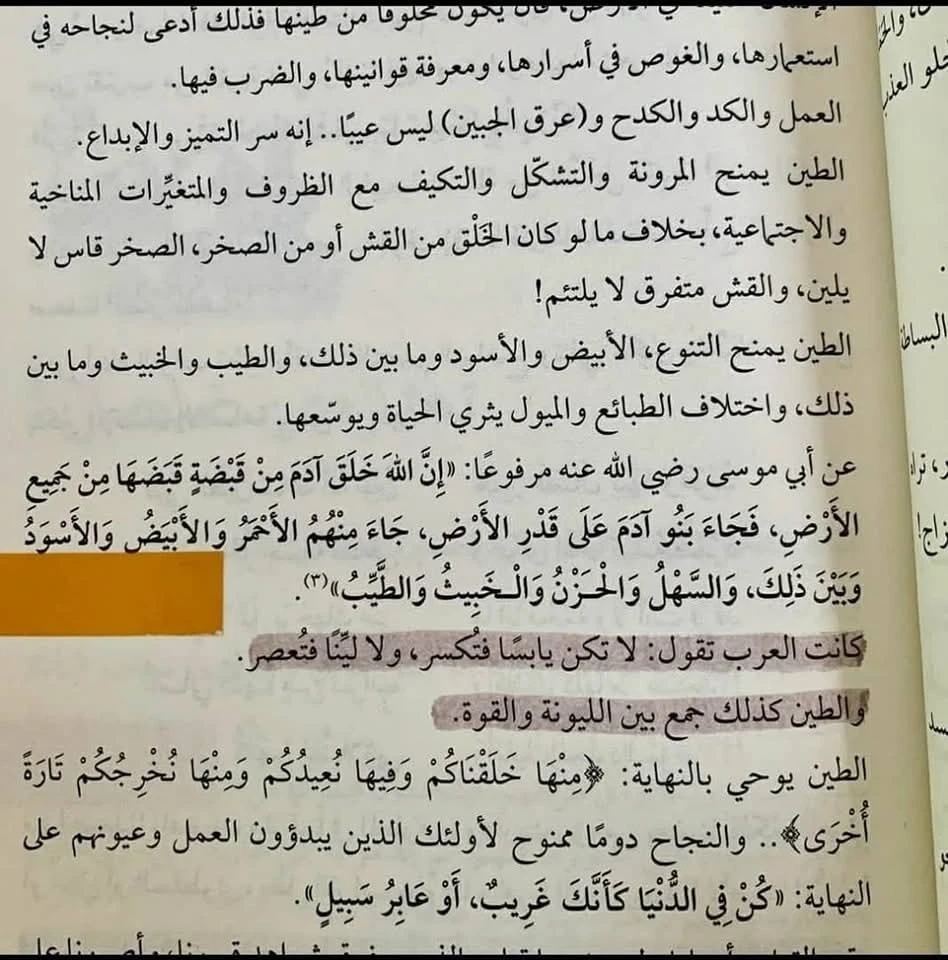 مخلوقًا من طينها فذلك أدعى لنجاحه في
استعمارها، والغوص في أسرارها، ومعرفة قوانينها، والضرب فيها.
العمل والكد والكدح و(عرق الجبين) ليس عيبًا.. إنه سر التميز والإبداع.
الطين يمنح المرونة والتشكّل والتكيف مع الظروف والمتغيِّرات المناخية
والاجتماعية، بخلاف ما لو كان الخَلْق من القش أو من الصخر، الصخر قاس لا
يلين، والقش متفرق لا يلتئم!
الطين يمنح التنوع، الأبيض والأسود وما بين ذلك، والطيب والخبيث وما بين
ذلك، واختلاف الطبائع والميول يثري الحياة ويوسّعها.
عن أبي موسى رضي الله عنه مرفوعًا: «إِنَّ اللهَ خَلَقَ آدَمَ مِنْ قَبْضَةٍ قَبَضَهَا مِنْ جَمِيعِ
الأَرْضِ، فَجَاءَ بَنُو آدَمَ عَلَى قَدْرِ الأَرْضِ، جَاءَ مِنْهُمُ الأَحْمَرُ وَالأَبْيَضُ وَالأَسْوَدُ
وَبَيْنَ ذَلِكَ، وَالسَّهْلُ وَالْحَزْنُ وَالْخَبِيثُ وَالطَّيِّبُ»(٣).
كانت العرب تقول: لا تكن يابسًا فتُكسر، ولا ليِّنًا فتُعصر.
والطين كذلك جمع بين الليونة والقوة.
الطين يوحي بالنهاية: ﴿مِنْهَا خَلَقْنَاكُمْ وَفِيهَا نُعِيدُكُمْ وَمِنْهَا نُخْرِجُكُمْ تَارَةً
أُخْرَى﴾.. والنجاح دومًا ممنوح لأولئك الذين يبدؤون العمل وعيونهم على
النهاية: «كُنْ فِي الدُّنْيَا كَأَنَّكَ غَرِيبٌ، أَوْ عَابِرُ سَبِيلٍ».